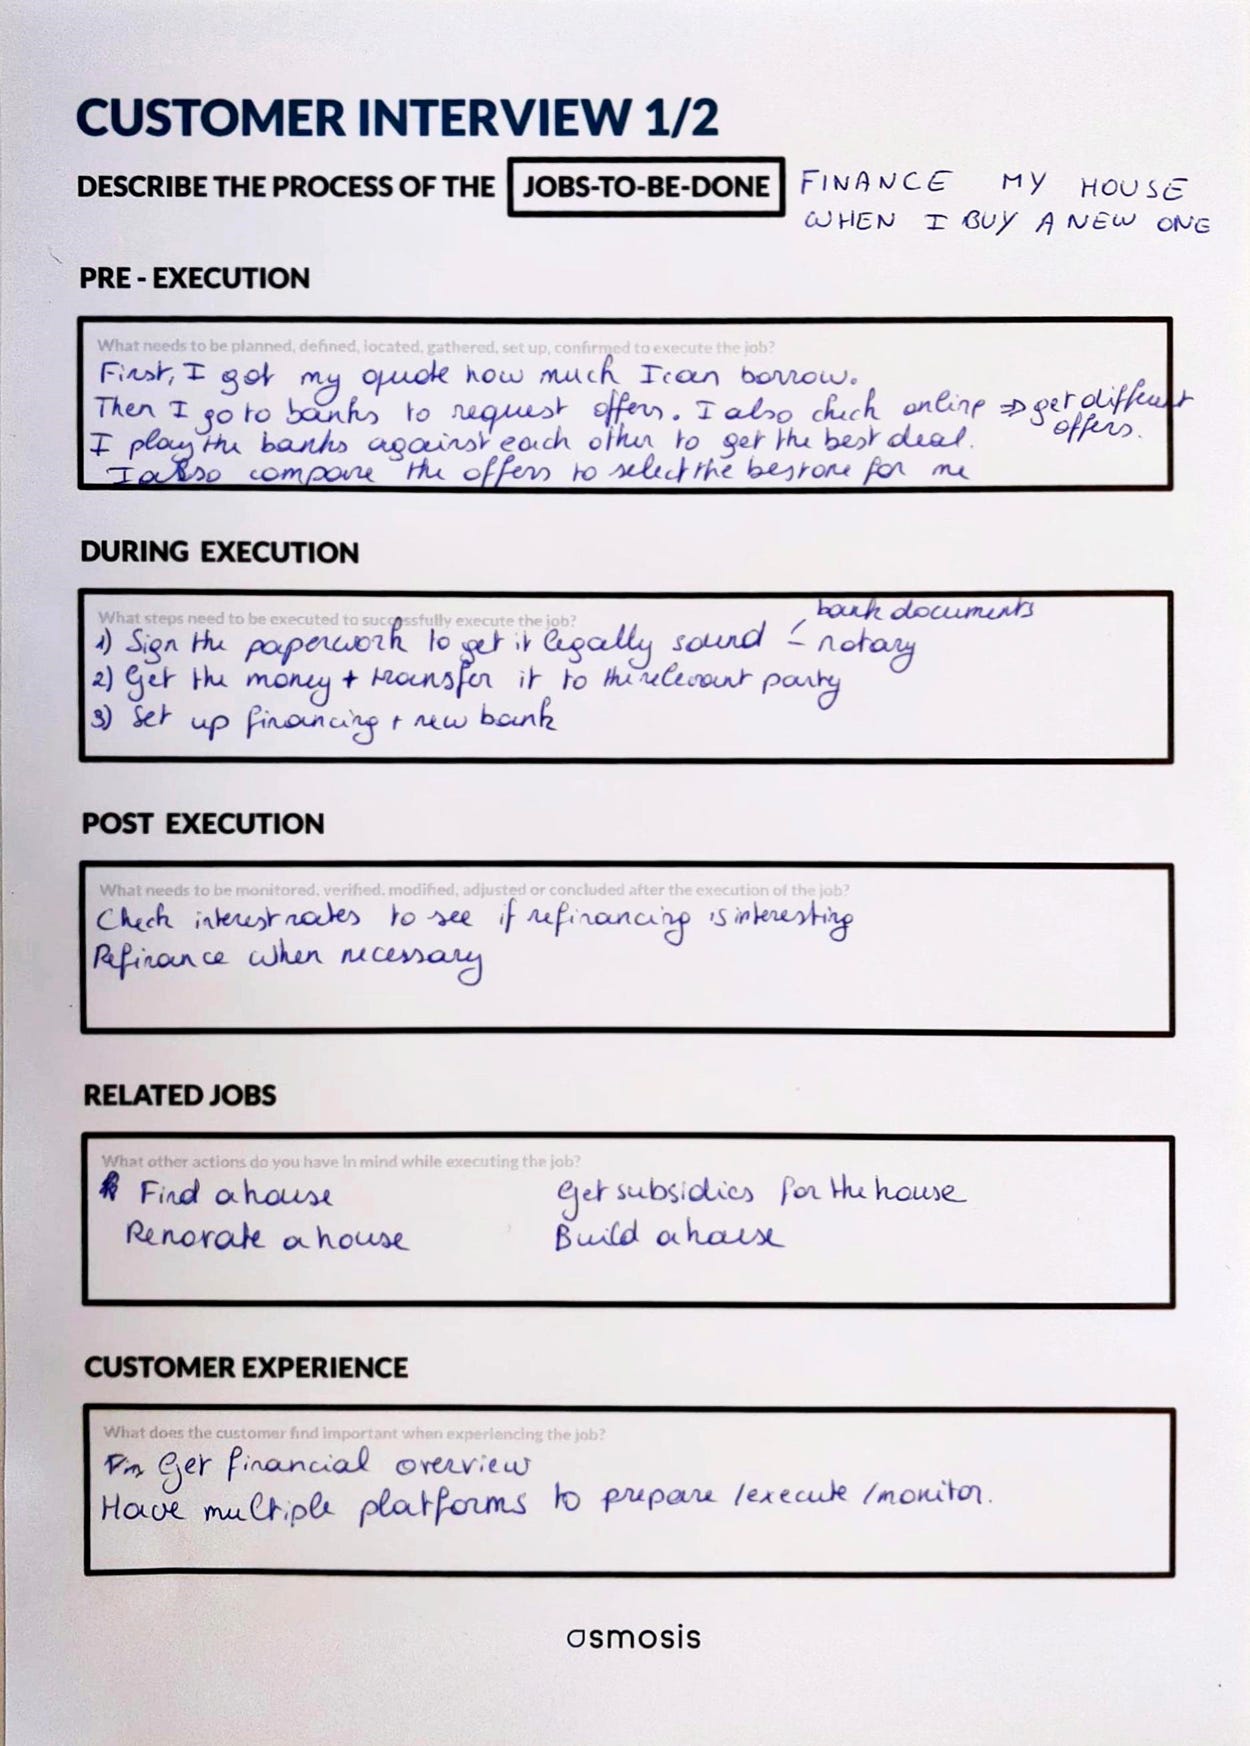 CUSTOMER INTERVIEW 1/2
DESCRIBE THE PROCESS OF THE JOBS-TO-BE-DONE FINANCE MY HOUSE
WHEN I BUY A NEW ONE
PRE - EXECUTION
What needs to be planned, defined, located, gathered, set up, confirmed to execute the job?
First, I got my quote how much I can borrow.
Then I go to banks to request offers. I also check online => get different
offers.
I play the banks against each other to get the best deal.
I also compare the offers to select the best one for me
DURING EXECUTION
What steps need to be executed to successfully execute the job?
bank documents
1) Sign the paperwork to get it legally sound - notary
2) Get the money + transfer it to the relevant party
3) Set up financing + new bank
POST EXECUTION
What needs to be monitored, verified, modified, adjusted or concluded after the execution of the job?
Check interest rates to see if refinancing is interesting
Refinance when necessary
RELATED JOBS
What other actions do you have in mind while executing the job?
Find a house Get subsidies for the house
Renovate a house Build a house
CUSTOMER EXPERIENCE
What does the customer find important when experiencing the job?
Get financial overview
Have multiple platforms to prepare / execute / monitor.
osmosis